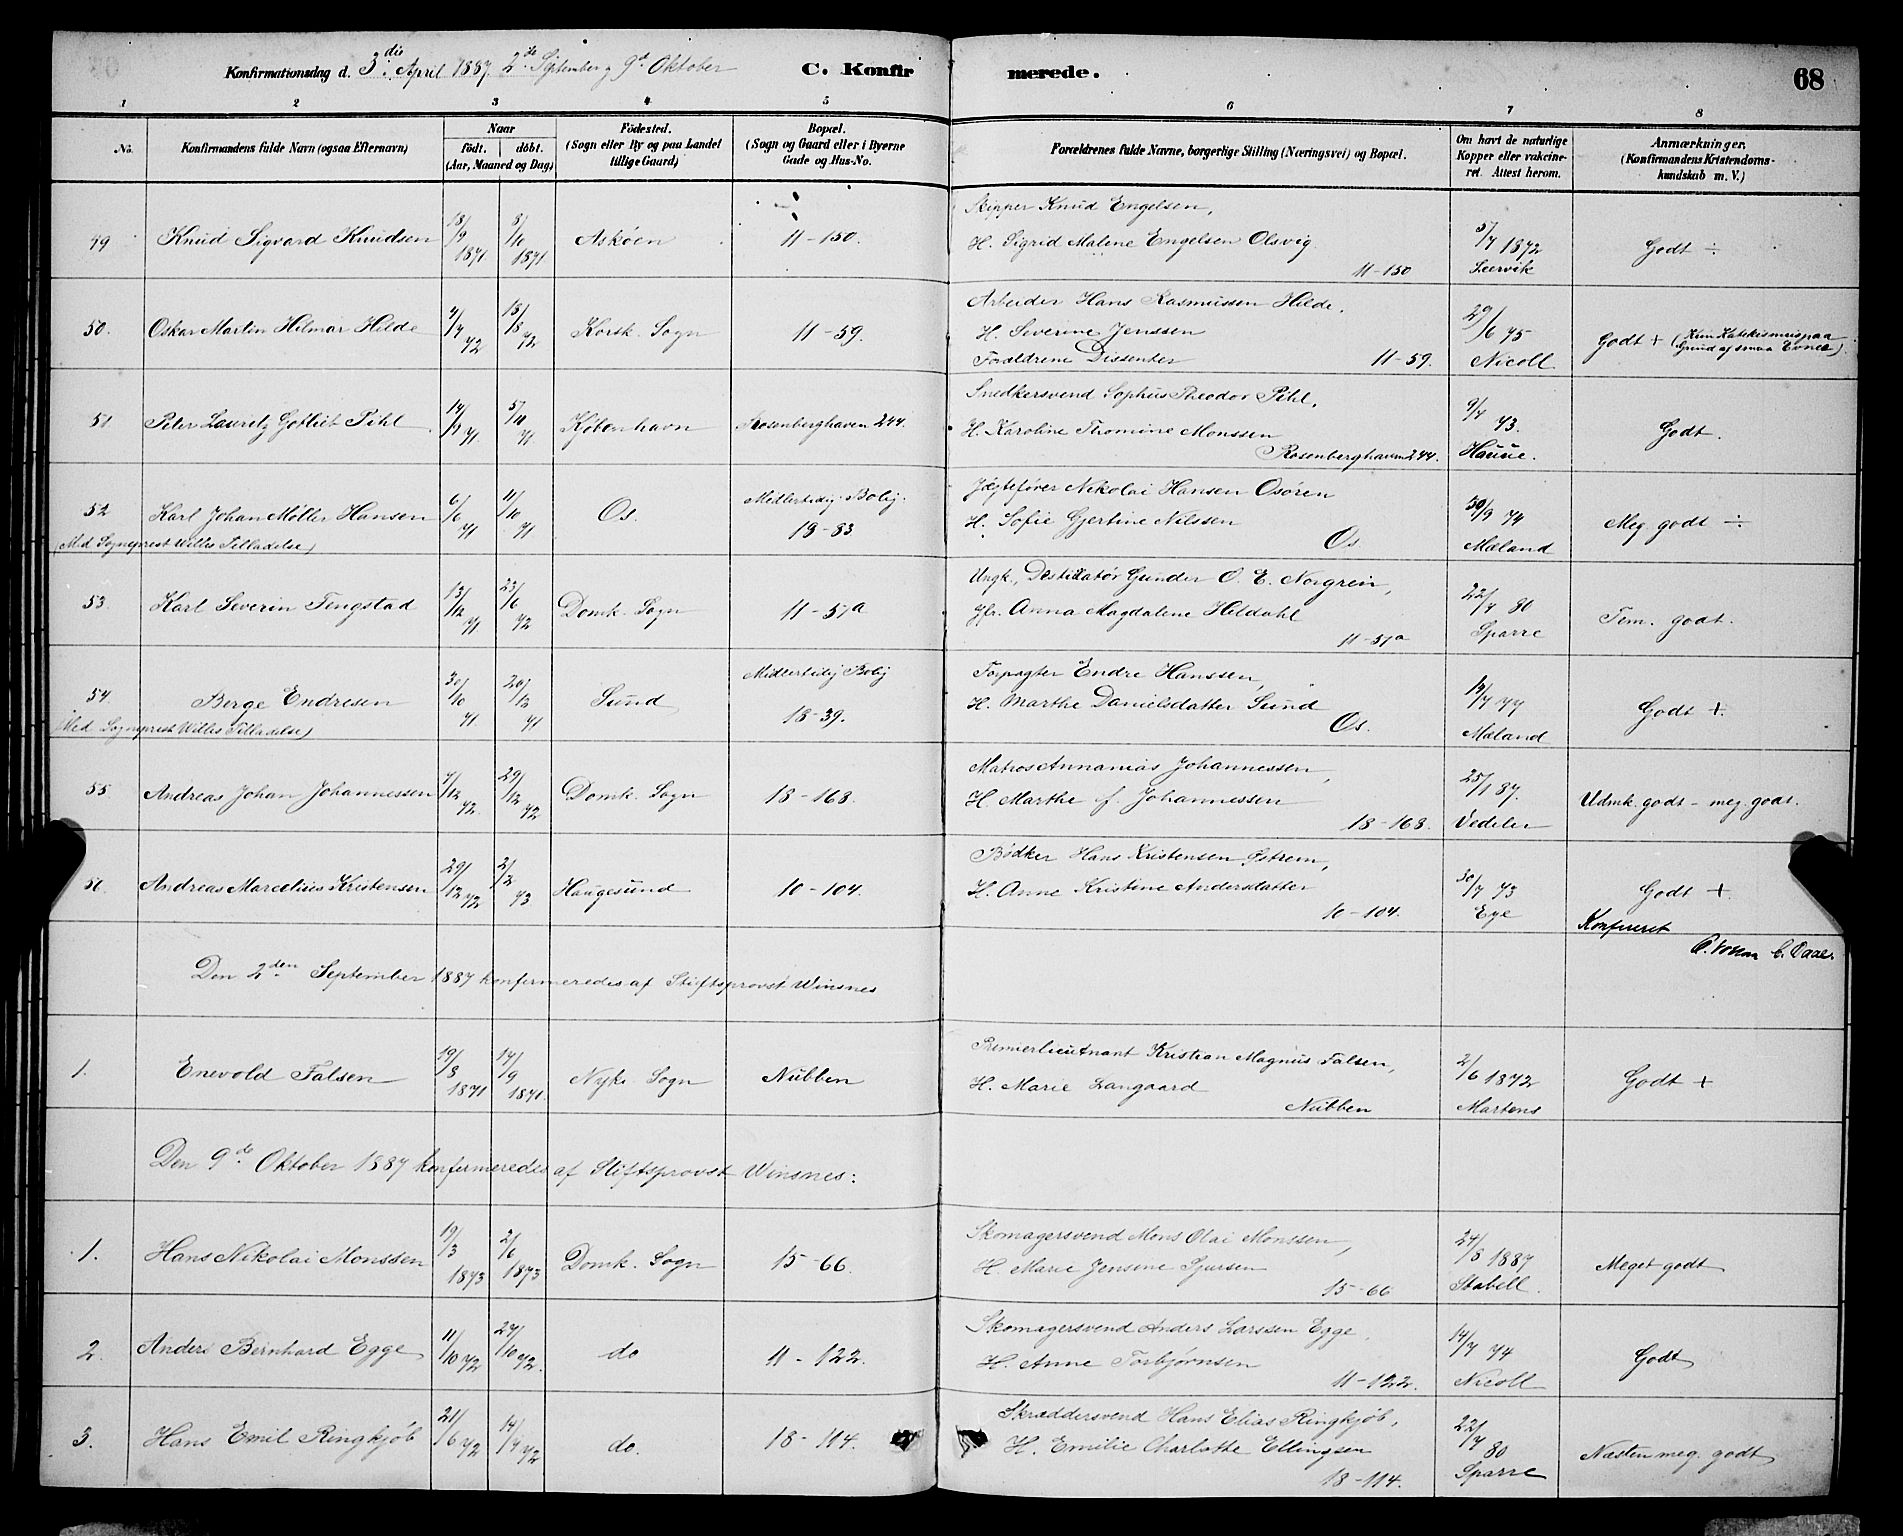 Konfirmationsdag d. 3die April 1887 2de September og 9de Oktober C. Konfirmerede. 68
1 2 3 4 5 6 7 8
No. Konfirmandens fulde Navn (ogsaa Efternavn) Naar født. døbt. (Aar, Maaned og Dag) Födested. (Sogn eller By og paa Landet tillige Gaard) Bopæl. (Sogn og Gaard eller i Byerne Gade og Hus-No. Forældrenes fulde Navne, borgerlige Stilling (Næringsvei) og Bopæl. Om havt de naturlige Kopper eller vakcineret. Attest herom. Anmærkninger. (Konfirmandens Kristendomskundskab m. V.)
49 Knud Sigvard Knudsen 18/9 1871 8/10 1871 Askøen 11-150. Skipper Knud Engelsen, H. Sigrid Malene Engelsen Olsvig. 11-150 5/7 1872 Leervik Godt ÷
50. Oskar Martin Hilmar Hilde 4/7 72 18/8 72 Korsk. Sogn 11-59. Arbeider Hans Rasmussen Hilde, H. Severine Jenssen Forældrene Dissenter 11-59. 29/6 75 Nicoll Godt + (Kun Katekismus paa Grund af smaa Evner)
51 Peter Lauritz Gotliet Pihl 14/9 71. 5/11 71 Kjøbenhavn Rosenberghaven 244. Snedkersvend Sophus Theodor Pihl, H. Karoline Thomine Monssen Rosenberghaven 244. 9/7 73. Hauue. Godt.
52 Karl Johan Møller Hansen 6/6 71 11/10 71 Os. Midlertidig Bolig. 18-83. Jægtefører Nikolai Hansen Osøren H. Sofie Gjertine Nilssen Os. 30/9 74 Mæland Meg. godt ÷
(Med Sogneprest Willes Tilladelse)
53. Karl Severin Tengstad 13/12 71. 23/6 72 Domk. Sogn 11-51a Ungk., Destilatør Gunder O. E. Norgrein, Jfr. Anna Magdalene Hildahl 11-51a 22/7 80 Sparre Tem. godt.
54. Berge Endresen 30/10 71 26/12 71 Sund Midlertidig Bolig 18-39. Forpagter Endre Hanssen, H. Marthe Danielsdatter Sund Os. 19/7 77 Mæland Godt +.
(Med Sogneprest Willes Tilladelse)
55 Andreas Johan Johannessen 7/12 72. 29/12 72 Domk. Sogn 18-168. Matros Annanias Johannessen, H. Marthe f. Johannessen 18-168. 25/1 87. Vedeler Udmk. godt - meg. godt.
56. Andreas Marcelius Kristensen 29/12 72 2/2 73. Haugesund 10-104. Bødker Hans Kristensen Østrem, H. Anne Kristine Andersdatter 10-104. 30/7 73 Eye Godt +.
Konfireret
C. Daae.
Den 2den September 1887 konfirmeredes af Stiftsprovst Winsnes
1. Enevold Falsen 19/8 1871 14/9 1871. Nyk. Sogn Nubben Premierlieutnant Kristian Magnus Falsen, H. Marie Langaard Nubben 2/6 1872 Martens Godt +
Den 9de Oktober 1887 konfirmeredes af Stiftsprovst Winsnes:
1. Hans Nikolai Monssen 19/3 1873 2/6 1873 Domk. Sogn 15-66. Skomagersvend Mons Olai Monssen, H. Marie Jensine Sjursen 15-66 24/8 1887 Stabell. Meget godt
2. Anders Bernhard Egge 11/10 72 27/10 72. do 11-122. Skomagersvend Anders Larssen Egge, H. Anne Torbjørnsen 11-122. 14/7 74 Nicoll Godt
3. Hans Emil Ringkjøb 21/6 72 14/7 72 do. 18-114. Skræddersvend Hans Elias Ringkjøb, H. Emilie Charlotte Ellingsen 18-114. 22/7 80 Sparre Næsten meg. godt